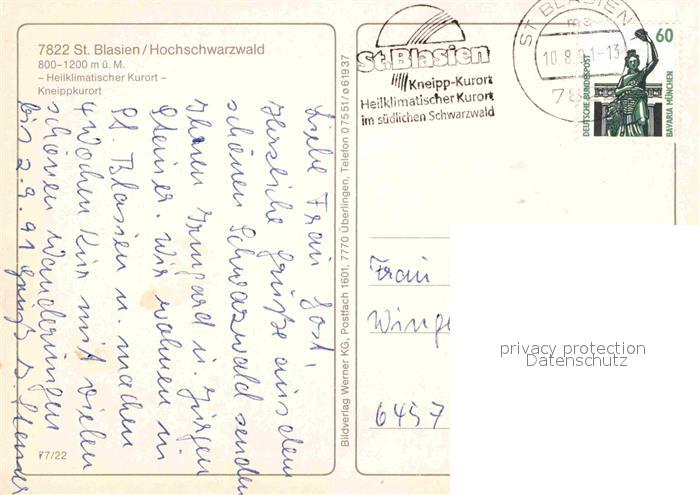 7822 St. Blasien/Hochschwarzwald
800–1200 m ü. M.
– Heilklimatischer Kurort –
Kneippkurort
Liebe Frau Jost,
Herzliche Grüße aus dem
schönen Schwarzwald senden
Ihnen Irmgard u. Jürgen
Steiner. Wir wohnen in
St. Blasien u. machen
4 Wochen Kur mit vielen
schönen Wanderungen
bis 2.9.91
77/22
Bildverlag Werner KG, Postfach 1601, 7770 Überlingen, Telefon 07551/ø61937
St. Blasien
Kneipp-Kurort
Heilklimatischer Kurort
im südlichen Schwarzwald
ST BLASIEN
10.8.91-13
78
60
DEUTSCHE BUNDESPOST
BAVARIA MÜNCHEN
Frau
6457
privacy protection
Datenschutz